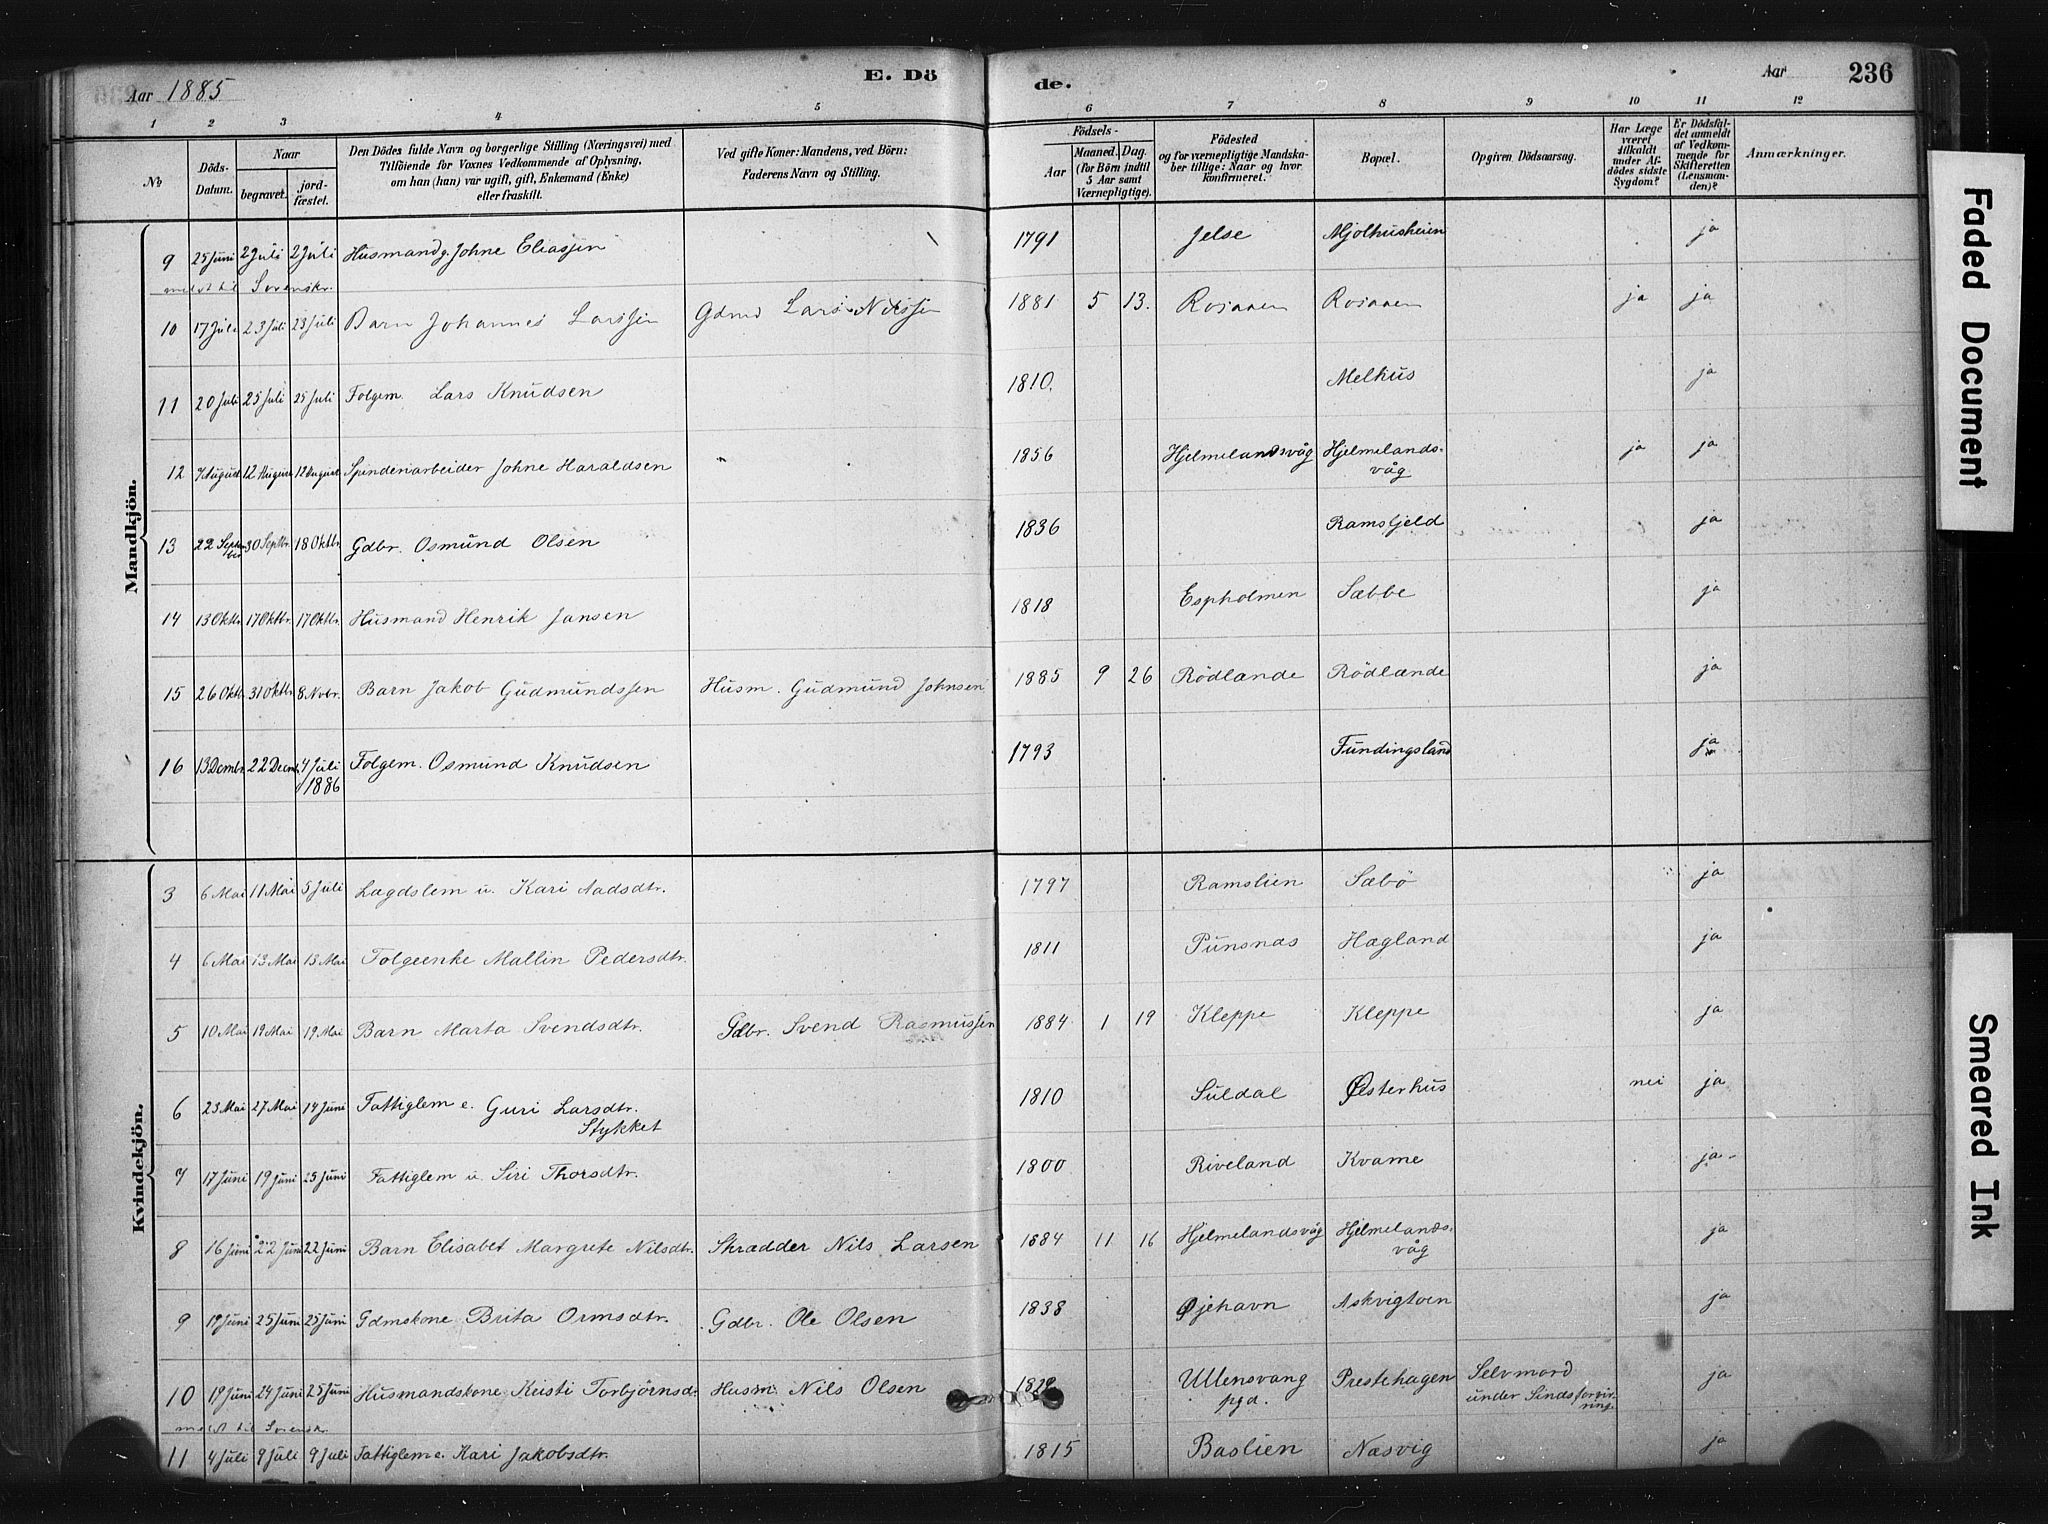 Aar 1885
E. Dö
de.
Aar
236
1 2 3 4 5 6 7 8 9 10 11 12
№
Döds-Datum.
Naar
begravet.
jord-fæstet.
Den Dödes fulde Navn og borgerlige Stilling (Næringsvei) med
Tilföiende for Voxnes Vedkommende af Oplysning,
om han (hun) var ugift, gift, Enkemand (Enke)
eller fraskilt.
Ved gifte Koner: Mandens, ved Börn:
Faderens Navn og Stilling.
Födsels-
Aar
Maaned. Dag.
(for Börn indtil
5 Aar samt
Værnepligtige).
Födested
og for værnepligtige Mandska-
ber tillige: Naar og hvor
konfirmeret.
Bopæl.
Opgiven Dödsaarsag.
Har Læge
været
tilkaldt
under Af-
dödes sidste
Sygdom?
Er Dödsfal-
det anmeldt
af Vedkom-
mende for
Skifteretten
(Lensman-
den)?
Anmærkninger.
Mandkjön.
9 25 Juni 2 Juli 2 Juli Husmandg. Johne Eliassen 1791 Jelse Mjolhusheien ja
meldt til Sorenskr.
10 17 Juli 23 Juli 23 Juli Barn Johannes Larssen Gdmd Lars Nilssen 1881 5 13. Rosaaen Rosaaen ja ja
11 20 Juli 25 Juli 25 Juli Folgem. Lars Knudsen 1810. Melhus ja
12 7 August 12 August 12 August Spinderiarbeider Johne Haraldsen 1856 Hjelmelandsvåg Hjelmelands-
våg ja ja
13 22 Septem-
ber 30 Septbr. 18 Oktbr. Gdbr. Osmund Olsen 1836 Ramsfjeld ja
14 13 Oktbr. 17 Oktbr. 17 Oktbr. Husmand Henrik Jansen 1818 Espholmen Sæbbe ja
15 26 Oktbr. 31 Oktbr. 8 Novbr. Barn Jakob Gudmundssen Husm. Gudmund Johnsen 1885 9 26 Rödlande Rödlænde ja
16 13 Decmbr. 22 Decmb. 4 Juli
1886 Folgem. Osmund Knudsen 1793 Fundingsland ja
Kvindekjön.
3 6 Mai 11 Mai 5 Juli Lægdslem u. Kari Aadsdtr. 1797 Ramslien Sæbö ja
4 6 Mai 13 Mai 13 Mai Folgeenke Mallin Pedersdtr. 1811 Punsnæs Hægland ja
5 10 Mai 19 Mai 19 Mai Barn Marta Svendsdtr. Gdbr. Svend Rasmussen 1884 1 19 Kleppe Kleppe ja
6 23 Mai 27 Mai 14 Juni Fattiglem e. Guri Larsdtr. 1810 Suldal Østerhus nei ja
Stykket
7 17 Juni 19 Juni 25 Juni Fattiglem u. Siri Thorsdtr. 1800 Riveland Kvame ja
8 16 Juni 22 Juni 22 Juni Barn Elisabet Margrete Nilsdtr. Skrædder Nils Larsen 1884 11 16 Hjelmelandsvåg Hjelmelands-
våg ja
9 19 Juni 25 Juni 25 Juni Gdmskone Brita Ormsdtr. Gdbr. Ole Olsen 1838 Øjehavn Askvigtoen ja
10 19 Juni 24 Juni 25 Juni Husmandskone Kristi Torbjörnsd. Husm. Nils Olsen 1829 Ullensvang
pgd. Prestehagen Selvmord
under Sindsforvir-
ring. ja
meldt til Sorensk.
11 4 Juli 9 Juli 9 Juli Fattiglem e. Kari Jakobsdtr. 1815 Baslien Næsvig ja
Faded Document
Smeared Ink